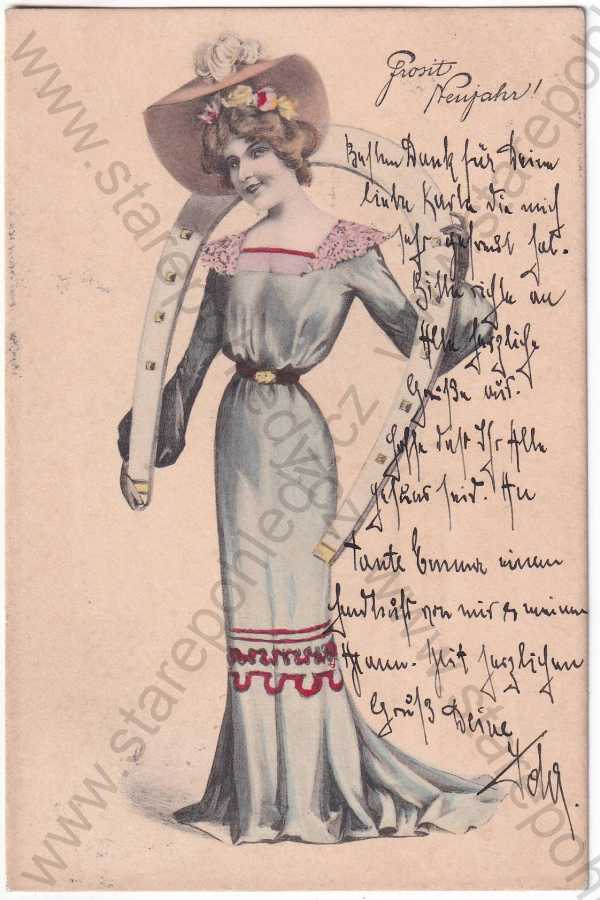 Prosit
Neujahr!
Besten Dank für Deine
liebe Karte die mich
sehr gefreut hat.
Bitte richte an
Alle herzliche
Grüße aus.
Hoffe daß Ihr Alle
gesund seid. An
Tante Emma einen
Handkuß von mir & meinem
Mann. Mit herzlichen
Gruß Deine
www.starepohledy.cz